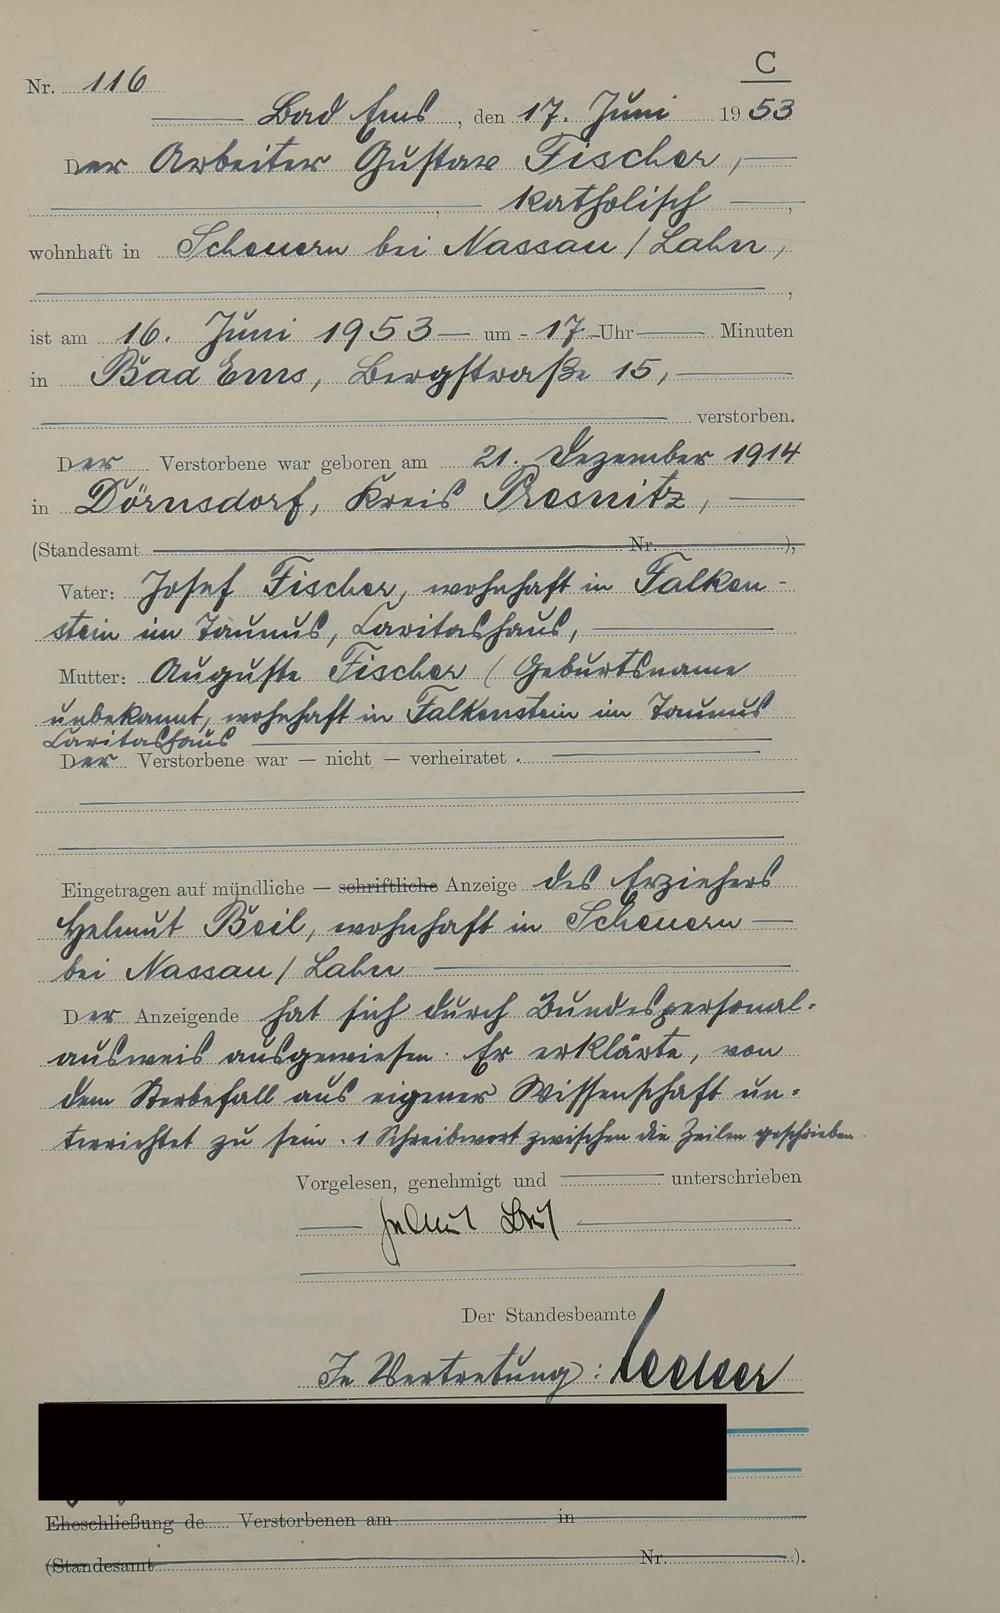 C
Nr. 116
Bad Ems, den 17. Juni 1953
Der Arbeiter Gustav Fischer,
, katholisch ,
wohnhaft in Scheuern bei Nassau / Lahn,
,
ist am 16. Juni 1953 um 17 Uhr Minuten
in Bad Ems, Bergstraße 15,
verstorben.
Der Verstorbene war geboren am 21. Dezember 1914
in Dörnsdorf, Kreis Presnitz,
(Standesamt Nr. ),
Vater: Josef Fischer, wohnhaft in Falken-
stein im Taunus, Caritashaus,
Mutter: Auguste Fischer (Geburtsname
unbekannt, wohnhaft in Falkenstein im Taunus
Caritashaus
Der Verstorbene war — nicht — verheiratet.
Eingetragen auf mündliche — schriftliche Anzeige des Erziehers
Helmut Beil, wohnhaft in Scheuern
bei Nassau / Lahn
Der Anzeigende hat sich durch Bundespersonal-
ausweis ausgewiesen. Er erklärte, von
dem Sterbefall aus eigener Wissenschaft un-
terrichtet zu sein. 1 Schreibwort zwischen die Zeilen geschrieben.
Vorgelesen, genehmigt und unterschrieben
Helmut Beil
Der Standesbeamte
In Vertretung:
Eheschließung de Verstorbenen am in
(Standesamt Nr. ).